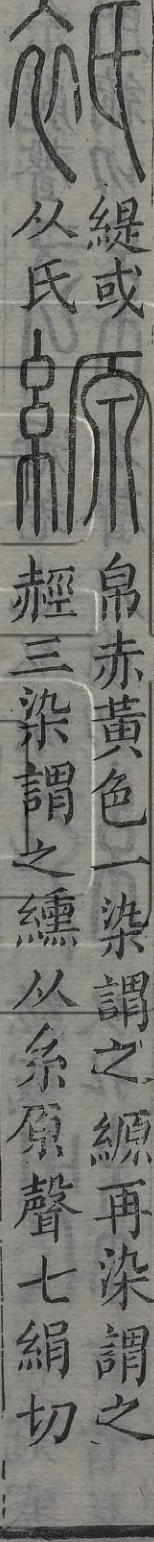 衹
緹或
从氏
縓
帛赤黃色一染謂之縓再染謂之
䞓三染謂之纁从糸原聲七絹切